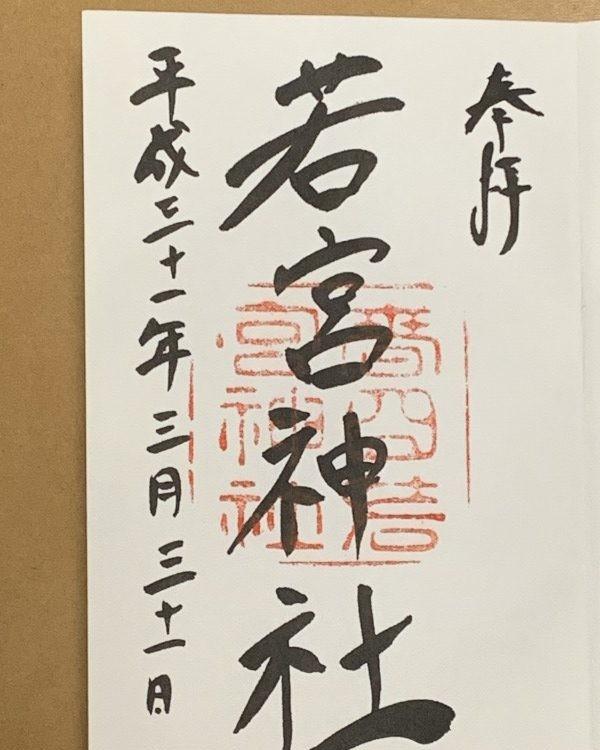 奉拝
若宮神社
平成三十一年三月三十一日